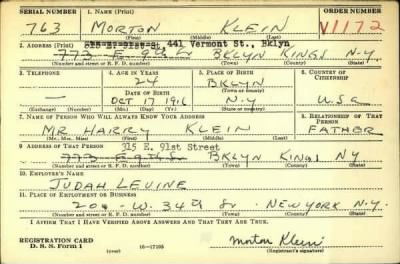 SERIAL NUMBER 1. NAME (Print) ORDER NUMBER
763 MORTON KLEIN V1172
(First) (Middle) (Last)
2. ADDRESS (Print) 441 Vermont St., Bklyn
773 E. 9th St BKLYN KINGS N.Y.
(Number and street or R. F. D. number) (Town) (County) (State)
3. TELEPHONE 4. AGE IN YEARS 5. PLACE OF BIRTH 6. COUNTRY OF CITIZENSHIP
24 BKLYN
DATE OF BIRTH (Town or county)
— OCT 17 1916 N.Y U.S.A
(Exchange) (Number) (Mo.) (Day) (Yr.) (State or country)
7. NAME OF PERSON WHO WILL ALWAYS KNOW YOUR ADDRESS 8. RELATIONSHIP OF THAT PERSON
MR HARRY KLEIN FATHER
(Mr., Mrs., Miss) (First) (Middle) (Last)
9. ADDRESS OF THAT PERSON 315 E. 91st Street
773 E 9th St BKLYN KINGS NY
(Number and street or R. F. D. number) (Town) (County) (State)
10. EMPLOYER'S NAME
JUDAH LEVINE
11. PLACE OF EMPLOYMENT OR BUSINESS
W. 34th St NEW YORK N.Y.
(Number and street or R. F. D. number) (Town) (County) (State)
I AFFIRM THAT I HAVE VERIFIED ABOVE ANSWERS AND THAT THEY ARE TRUE.
REGISTRATION CARD
D. S. S. Form 1 (over) 16—17105 Morton Klein
(Registrant's signature)